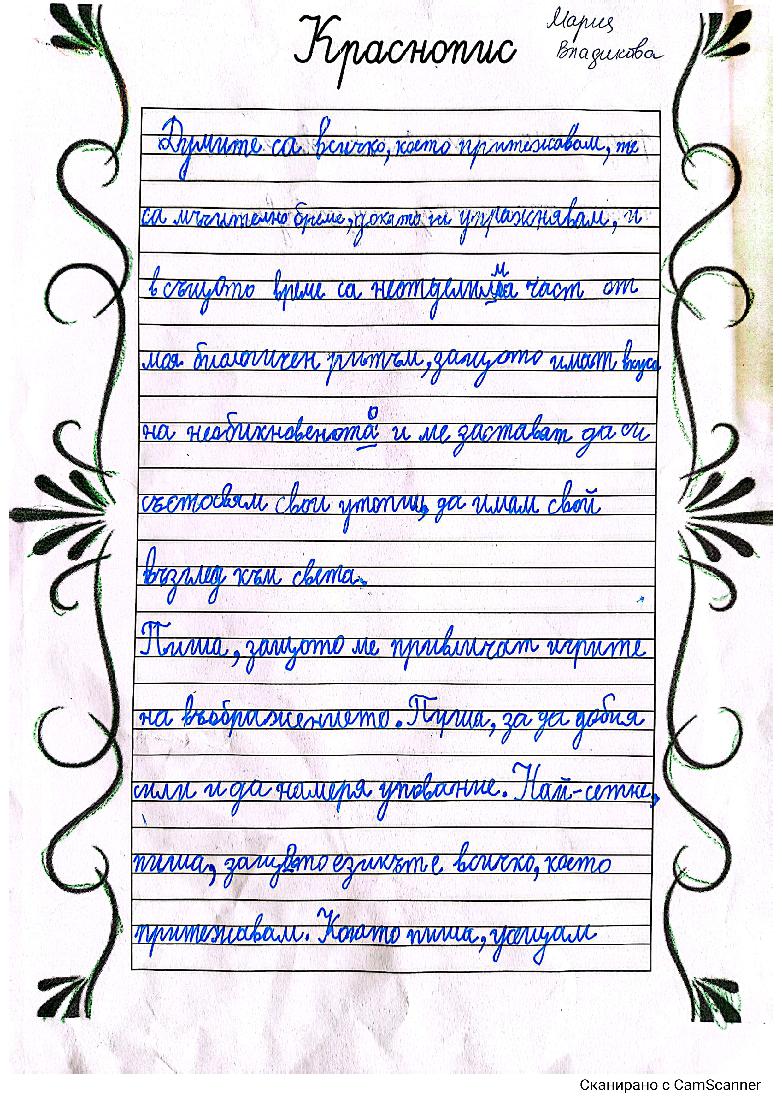 Краснопис
Мария
Владикова
Думите са всичко, което притежавам, те
са мъчително бреме, докато ги упражнявам, и
в същото време са неотделима част от
моя биологичен ритъм, защото имат вкуса
на необикновеното и ме заставят да си
съставям свои утопии, да имам свой
възглед към света.
Пиша, защото ме привличат игрите
на въображението. Пиша, за да добия
сили и да намеря упование. Най-сетне,
пиша, защото езикът е всичко, което
притежавам. Когато пиша, усещам
Сканирано с CamScanner